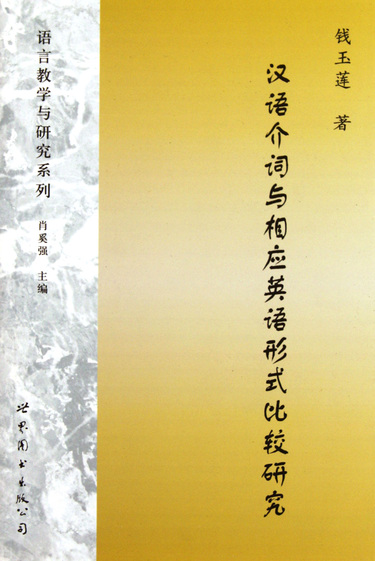 钱玉莲 著
汉语介词与相应英语形式比较研究
语言教学与研究系列
肖奚强 主编
世界图书出版公司